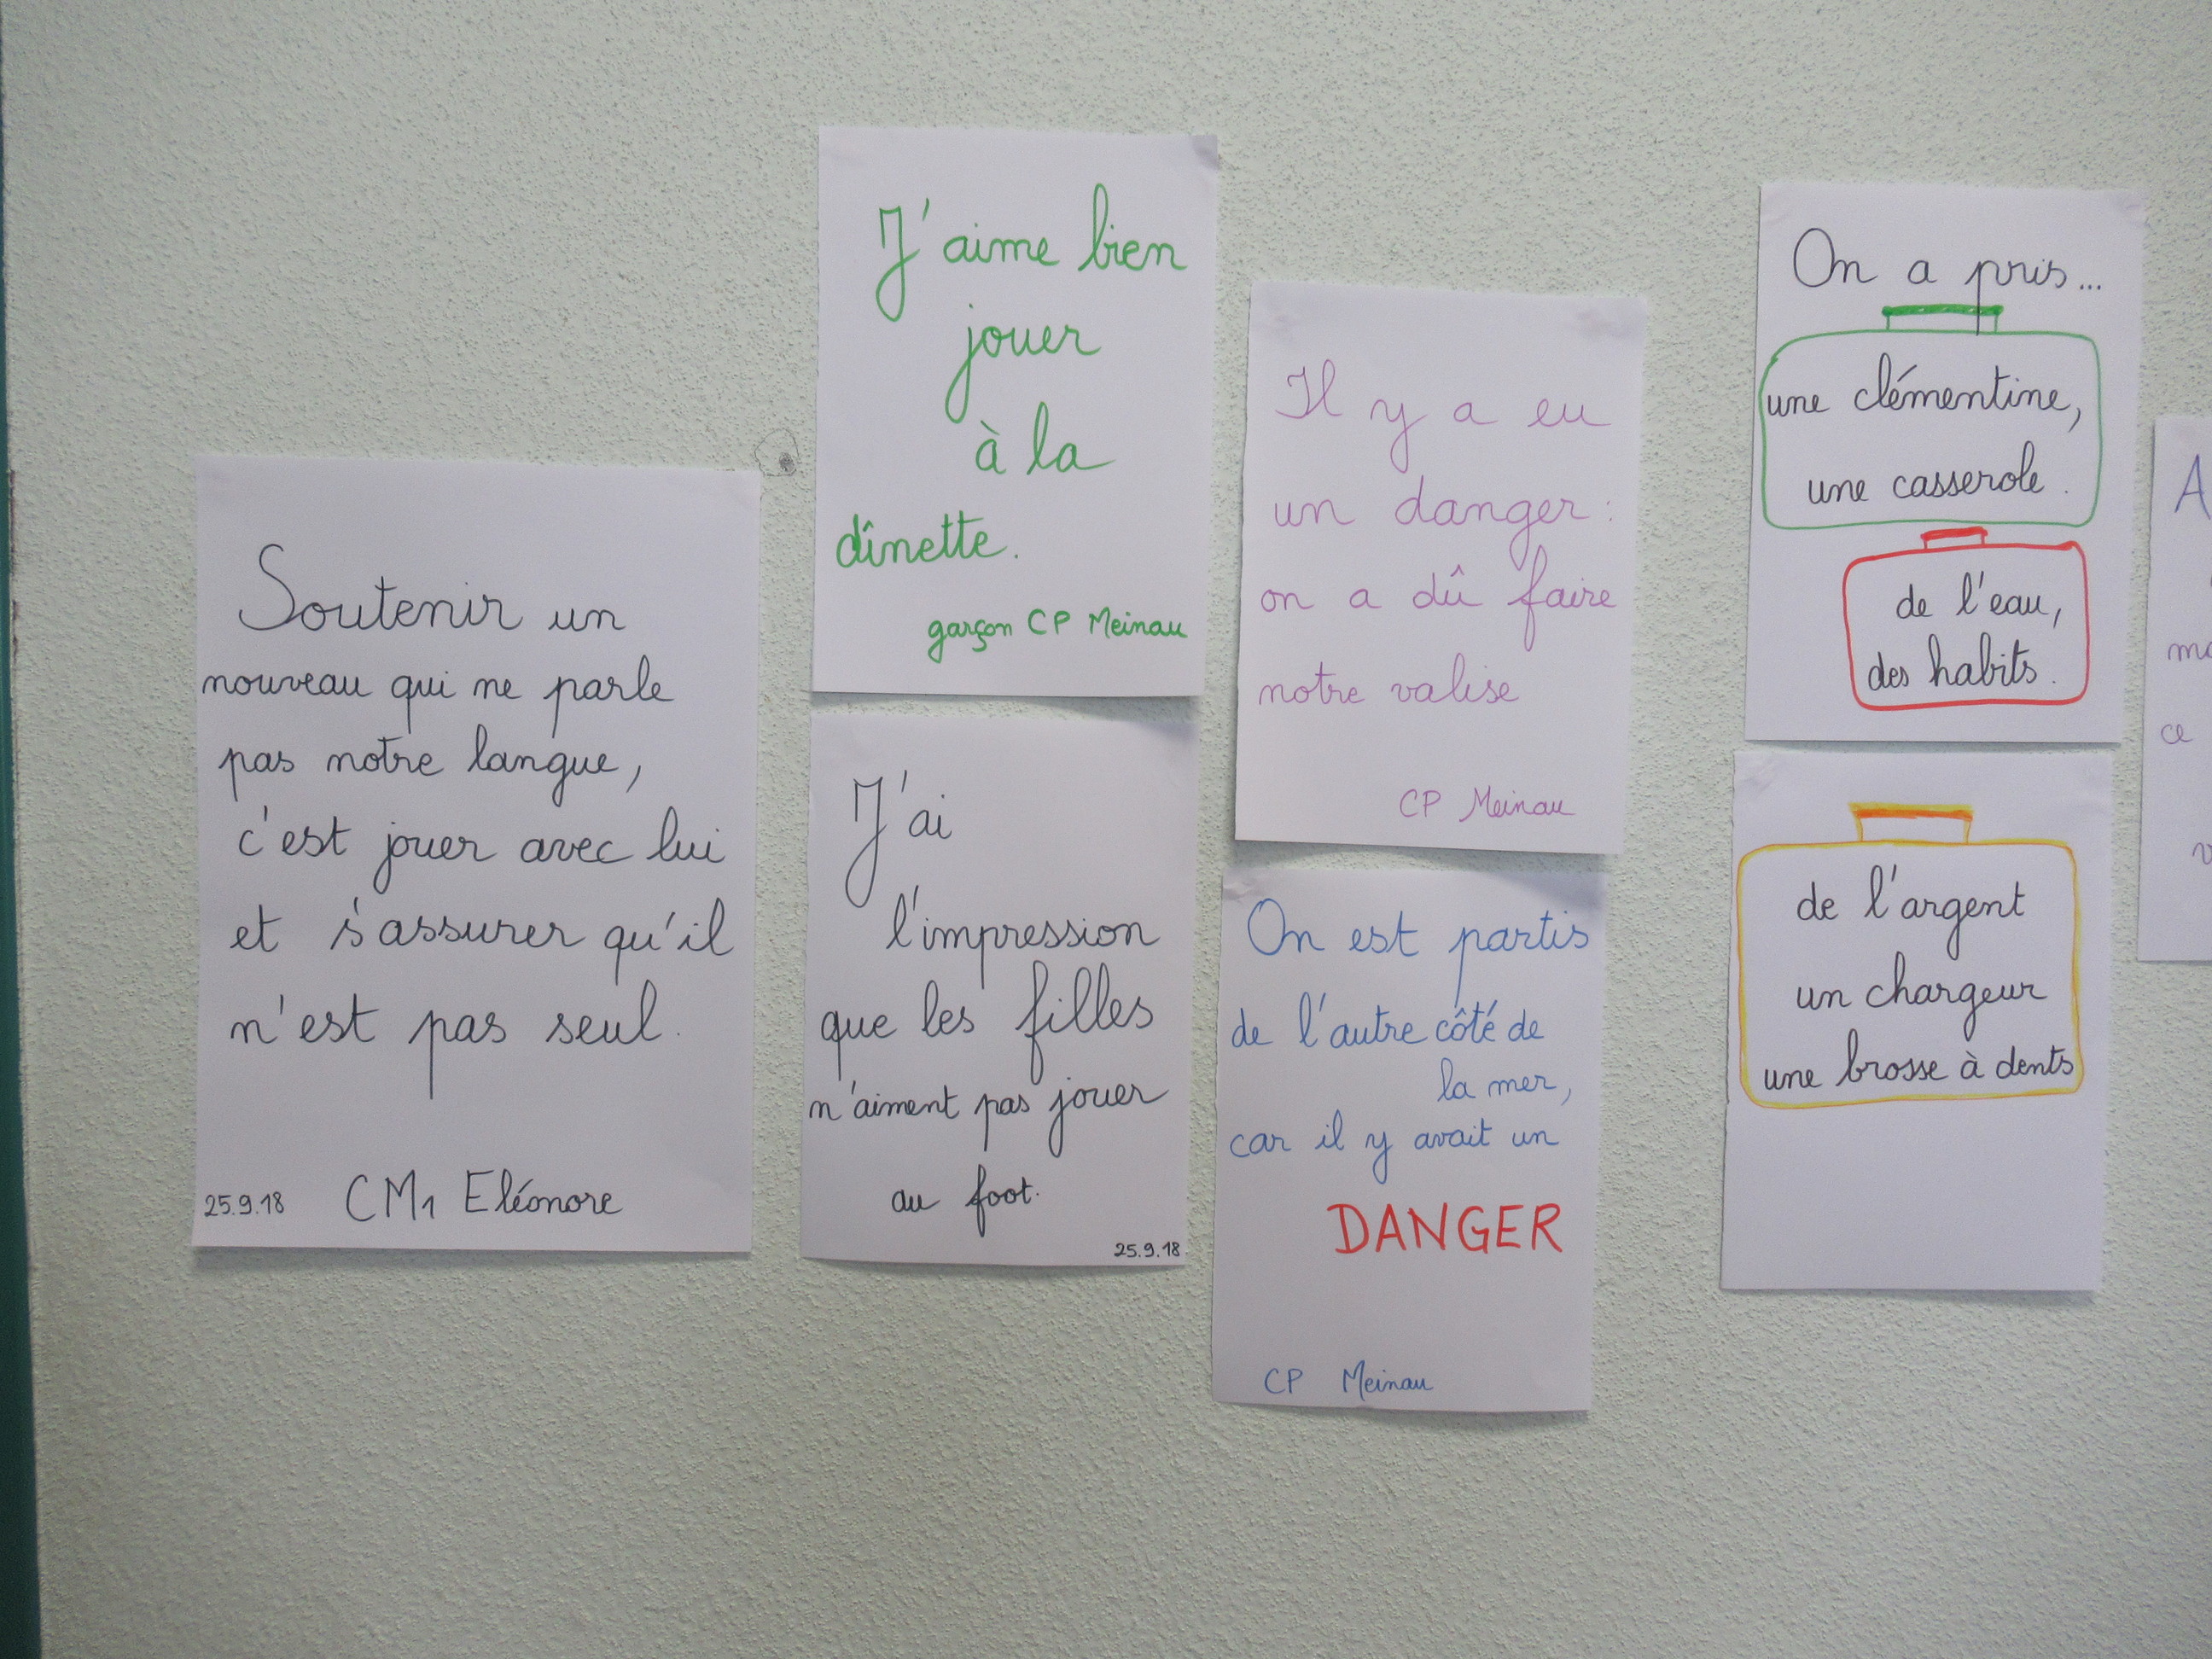 Soutenir un
nouveau qui ne parle
pas notre langue,
c'est jouer avec lui
et s'assurer qu'il
n'est pas seul.
25.9.18 CM1 Eléonore
J'aime bien
jouer
à la
dînette.
garçon CP Meinau
J'ai
l'impression
que les filles
n'aiment pas jouer
au foot.
25.9.18
Il y a eu
un danger :
on a dû faire
notre valise
CP Meinau
On est partis
de l'autre côté de
la mer,
car il y avait un
DANGER
CP Meinau
On a pris...
une clémentine,
une casserole.
de l'eau,
des habits.
de l'argent
un chargeur
une brosse à dents
A
ce